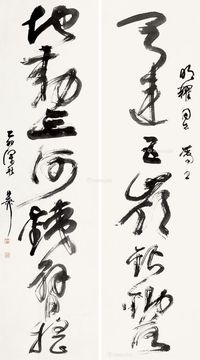 明耀同志
天連五嶺銀鋤落
地動三河鐵臂搖